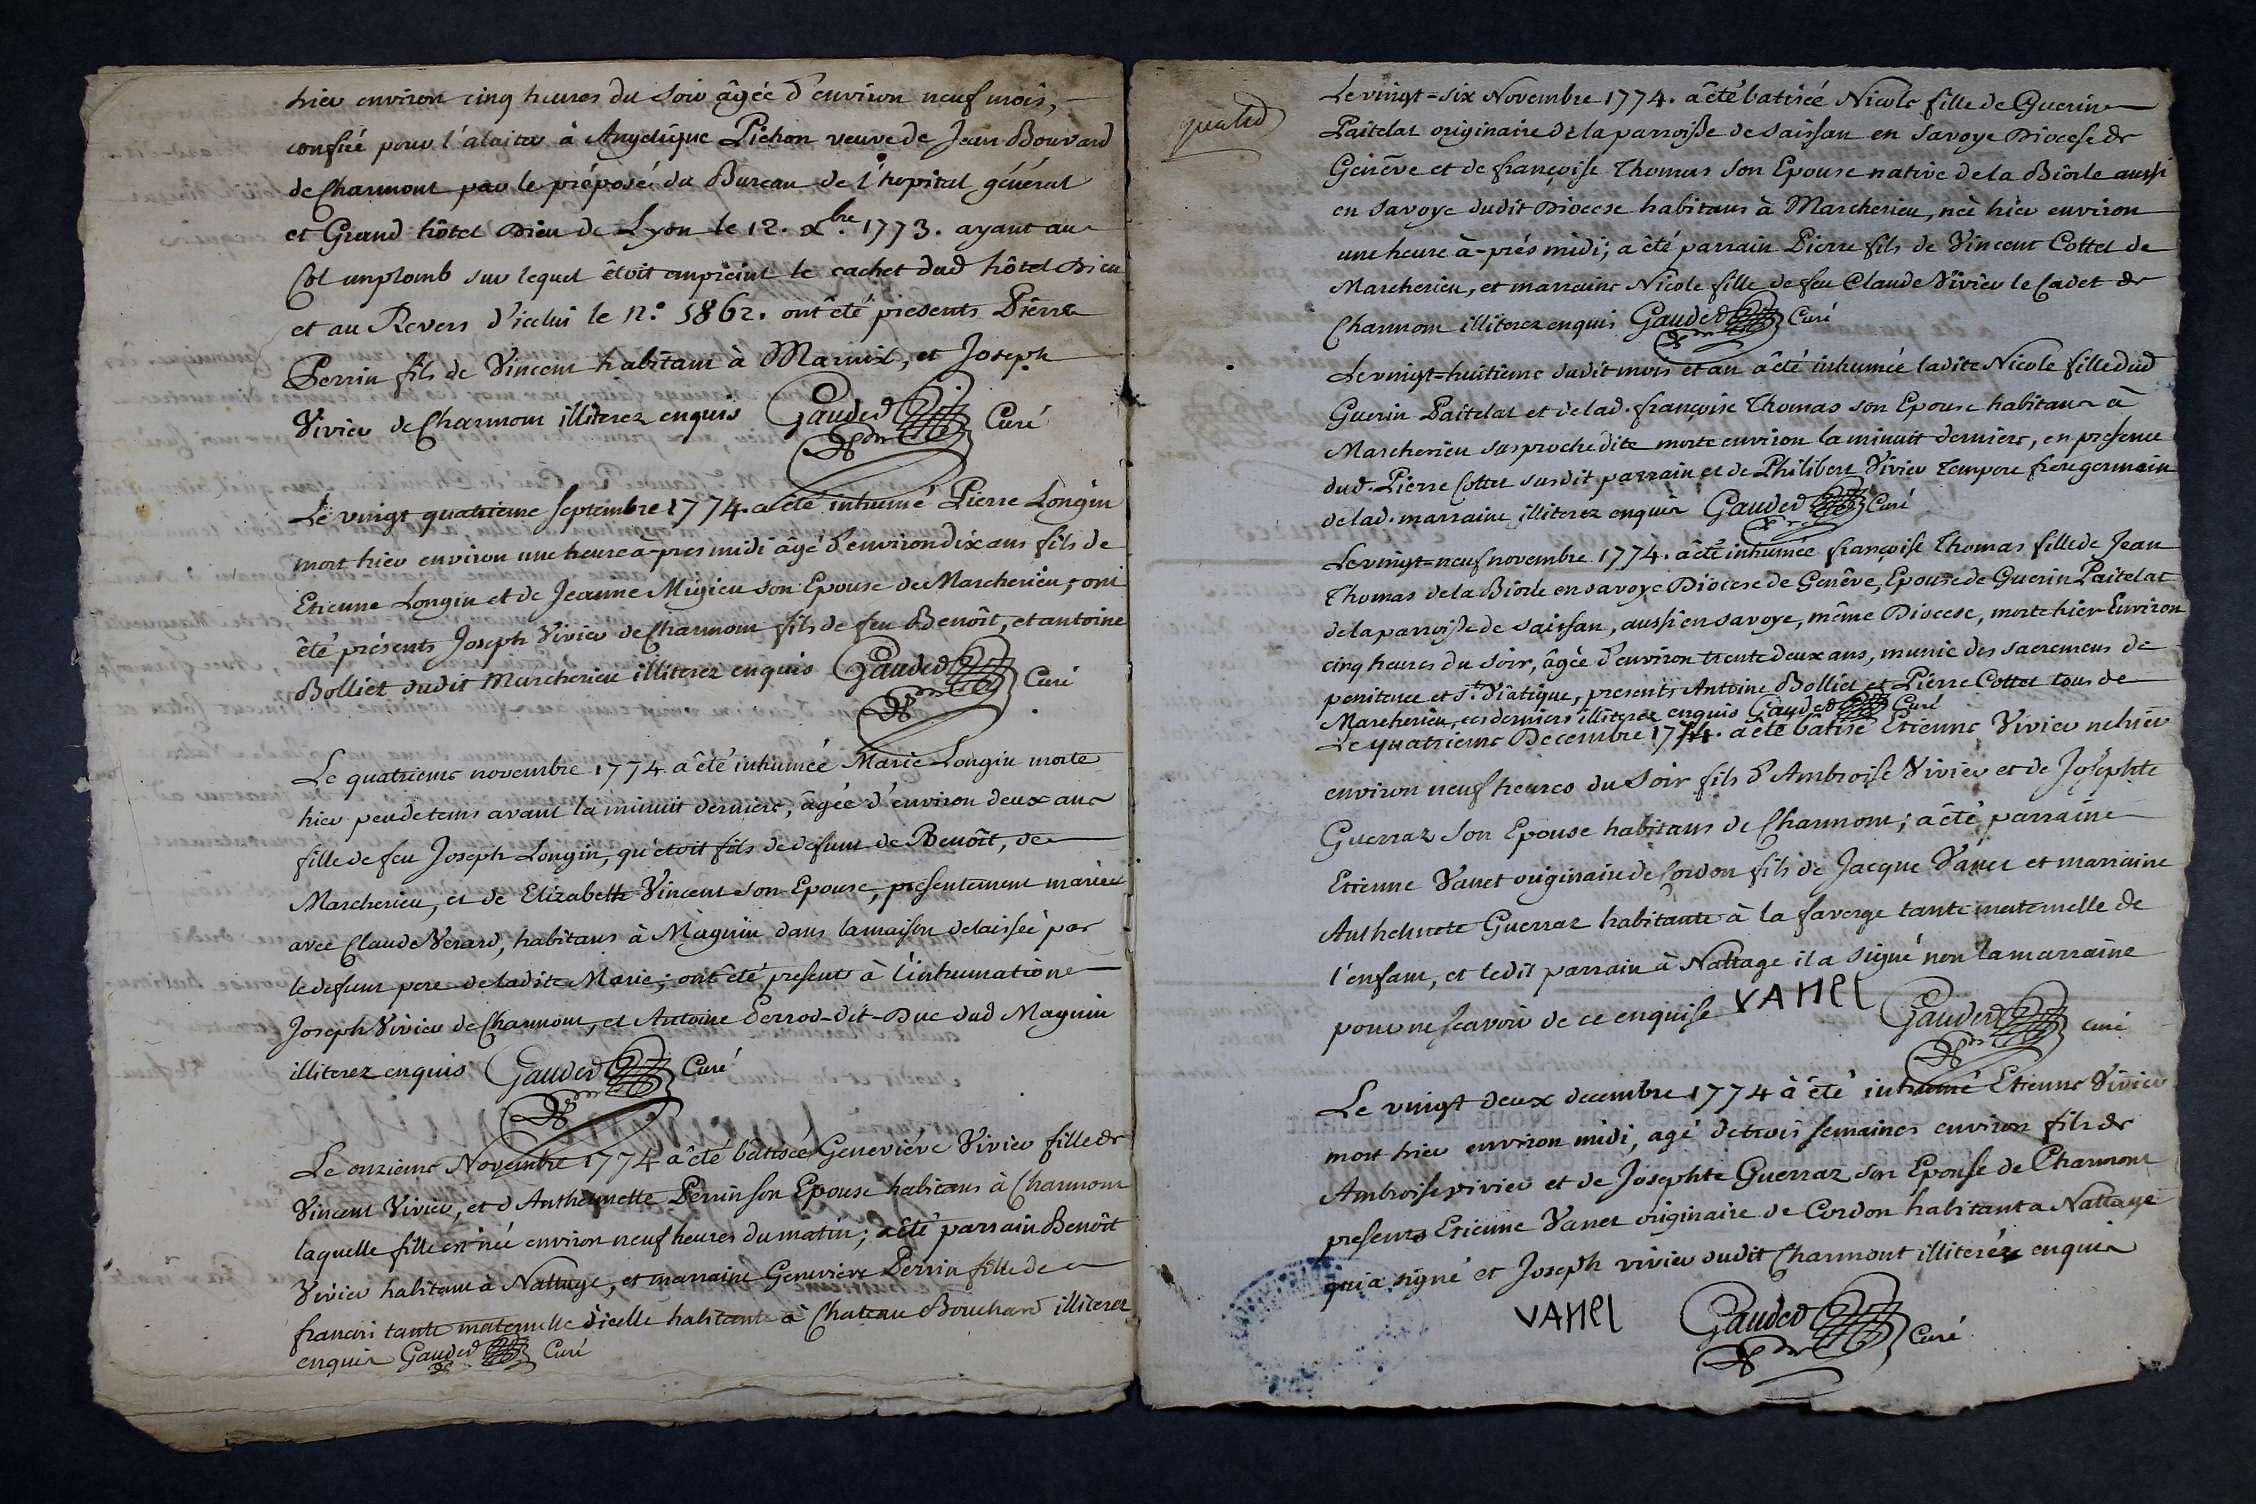 hier environ cinq heures du soir âgée d'environ neuf mois,
confiée pour l'alaiter à Angelique Pichon veuve de Jean Bouvard
de Charmont par le préposé du Bureau de l'hopital général
et Grand hôtel Dieu de Lyon le 12. Xbre. 1773. ayant au
Col un plomb sur lequel êtoit empreint le cachet dud hôtel Dieu
et au Revers d'icelui le N.° 5862. ont êté presents Pierre
Perrin fils de Vincent habitant à Marnix, et Joseph
Vivier de Charmont illiterez enquis Gauded Curé
Le vingt quatrieme septembre 1774. a êté inhumé Pierre Longin
mort hier environ une heure à-pres midi âgé d'environ dix ans fils de
Etienne Longin et de Jeanne Migieu son Epouse de Marcherieu, ont
êté présents Joseph Vivier de Charmont fils de feu Benoît, et antoine
Bolliet dudit Marcherieu illiterez enquis Gauded Curé
Le quatrieme novembre 1774 a êté inhumée Marie Longin morte
hier peu de tems avant la minuit derniere, âgée d'environ deux ans
fille de feu Joseph Longin, qu'êtoit fils de defunt de Benoît, de
Marcherieu, et de Elizabette Vincent son Epouse, presentement mariée
avec Claude Verard, habitans à Magnin dans la maison delaissée par
le defunt pere de ladite Marie; ont êté presents à l'inhumation
Joseph Vivier de Charmont, et Antoine Perrod-dit-Duc dud Magnin
illiterez enquis Gauded Curé
Le onzieme Novembre 1774 a êté batisée Geneviéve Vivier fille de
Vincent Vivier, et d'Anthelmette Perrin son Epouse habitans à Charmont
laquelle fille est née environ neuf heures du matin; a êté parrain Benoît
Vivier habitant à Nattage, et marraine Geneviéve Perrin fille de
francois tante maternelle d'icelle habitante à Chateau Bouchard illiterez
enquis Gauded Curé
Le vingt-six Novembre 1774. a êté batisée Nicole fille de Guerin
Paitelat originaire de la parroisse de saissan en savoye Diocese de
Genêve et de françoise Thomas son Epouse native de la Biorle aussi
en savoye dudit Diocese habitans à Marcherieu, née hier environ
une heure à-prés midi; a êté parrain Pierre fils de Vincent Cottet de
Marcherieu, et marraine Nicole fille de feu Claude Vivier le Cadet de
Charmont illiterez enquis Gauded Curé
Le vingt-huitieme dudit mois et an a êté inhumée ladite Nicole fille dud
Guerin Paitelat et de lad. françoise Thomas son Epouse habitans à
Marcherieu susproche dite morte environ la minuit derniere, en presence
dud. Pierre Cottet susdit parrain et de Philibert Vivier Tempore frere germain
de lad. marraine illiterez enquis Gauded Curé
Le vingt-neuf novembre 1774. a êté inhumée françoise Thomas fille de Jean
Thomas de la Biorle en savoye Diocese de Genêve, Epouse de Guerin Paitelat
de la parroisse de saissan, aussi en savoye, même Diocese, morte hier Environ
cinq heures du soir, âgée d'environ trente deux ans, munie des sacremens de
penitence et St. Viatique, presents Antoine Bolliet et Pierre Cottet tous de
Marcherieu, ces derniers illiterez enquis Gauded Curé
Le quatrieme Decembre 1774. a êté batisé Etienne Vivier né hier
environ neuf heures du soir fils d'Ambroise Vivier et de Josephte
Guerraz son Epouse habitans de Charmont; a êté parrain
Etienne Vanet originaire de Cordon fils de Jacque Vanet et marraine
Anthelmete Guerraz habitante à la faverge tante maternelle de
l'enfant, et ledit parrain à Nattage il a signé non la marraine
pour ne scavoir de ce enquise VANEL Gauded curé
Le vingt deux decembre 1774 à êté inhumé Etienne Vivier
mort hier environ midi, agé de trois semaines environ fils de
Ambroise vivier et de Josephte Guerraz son Epouse de Charmont
presents Etienne Vanet originaire de Cordon habitant a Nattage
qui a signé et Joseph vivier dudit Charmont illiteréz enquis
VANEL Gauded Curé